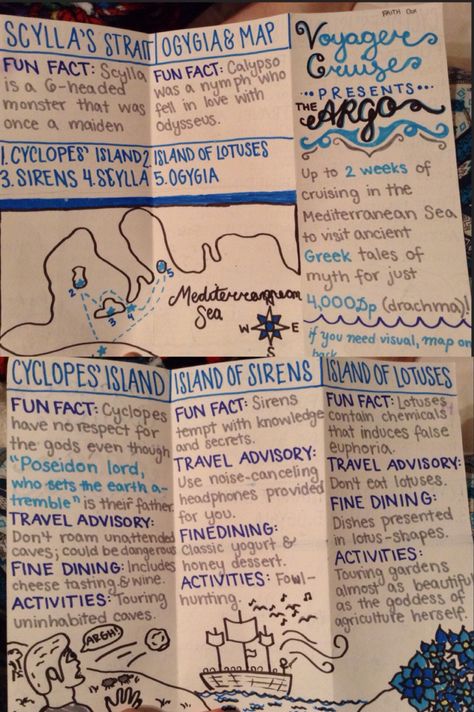 FAITH COX
SCYLLA'S STRAIT
FUN FACT: Scylla
is a 6-headed
monster that was
once a maiden
OGYGIA & MAP
FUN FACT: Calypso
was a nymph who
fell in love with
odysseus.
1. CYCLOPES' ISLAND 2. ISLAND OF LOTUSES
3. SIRENS 4. SCYLLA 5. OGYGIA
5
2
3
Mediterranean
Sea
N
W E
S
Voyager
Cruise
PRESENTS
THE ARGO
Up to 2 weeks of
cruising in the
Mediterranean Sea
to visit ancient
Greek tales of
myth for just
4,000Dp (drachma)!
if you need visual, map on
back
CYCLOPES ISLAND
FUN FACT: Cyclopes
have no respect for
the gods even though
"Poseidon lord,
who sets the earth a-
tremble" is their father.
TRAVEL ADVISORY:
Don't roam unattended
caves; could be dangerous
FINE DINING: Includes
cheese tasting & wine.
ACTIVITIES: Touring
uninhabited caves.
ARGH!
ISLAND OF SIRENS
FUN FACT: Sirens
tempt with knowledge
and secrets.
TRAVEL ADVISORY:
Use noise-canceling
headphones provided
for you.
FINEDINING:
Classic yogurt &
honey dessert.
ACTIVITIES: Fowl-
hunting.
ISLAND OF LOTUSES
FUN FACT: Lotuses
contain chemicals
that induces false
euphoria.
TRAVEL ADVISORY:
Don't eat lotuses.
FINE DINING:
Dishes presented
in lotus-shapes.
ACTIVITIES:
Touring gardens
almost as beautiful
as the goddess of
agriculture herself.